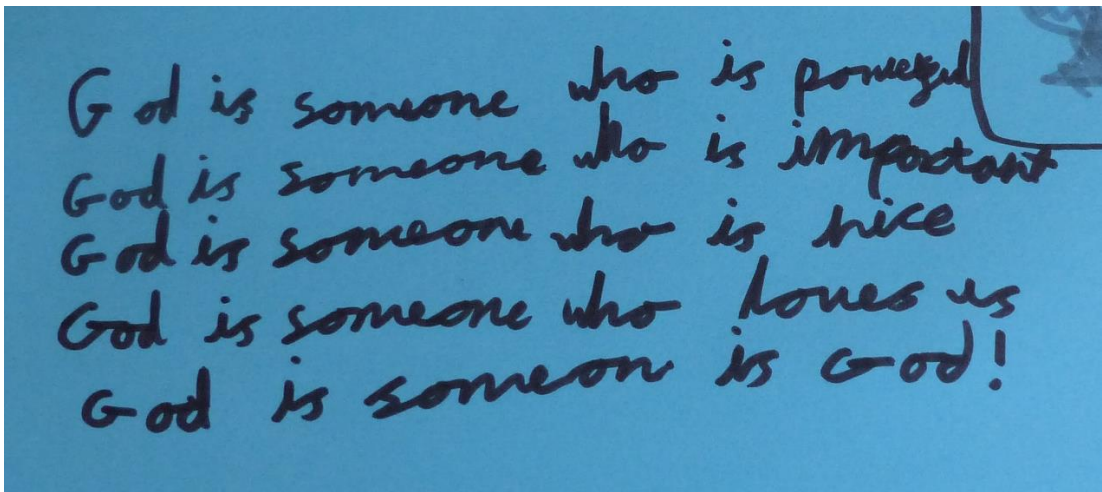 God is someone who is powerful
God is someone who is important
God is someone who is nice
God is someone who loves us
God is someon is God!